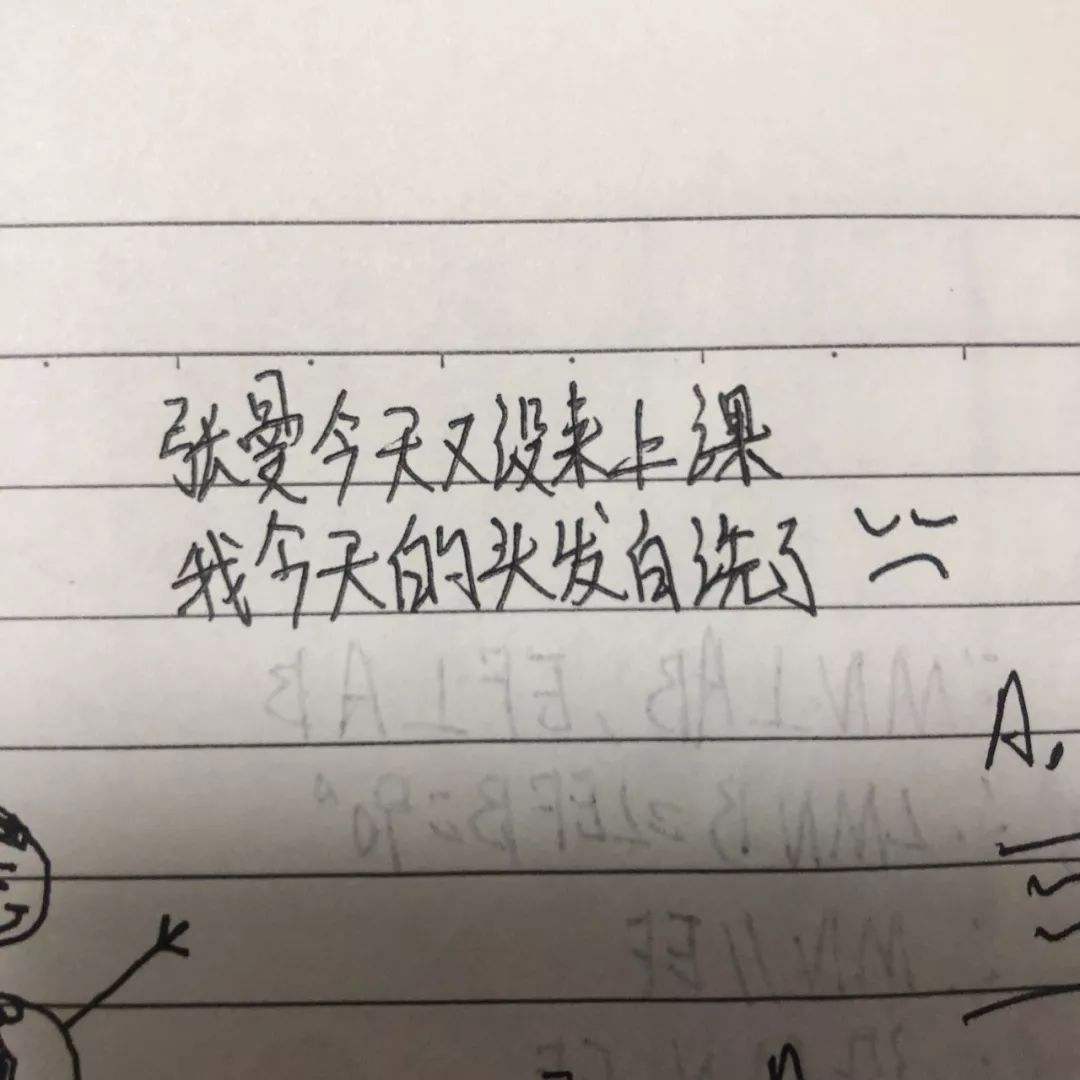 张曼今天又没来上课
我今天的头发白洗了
A,